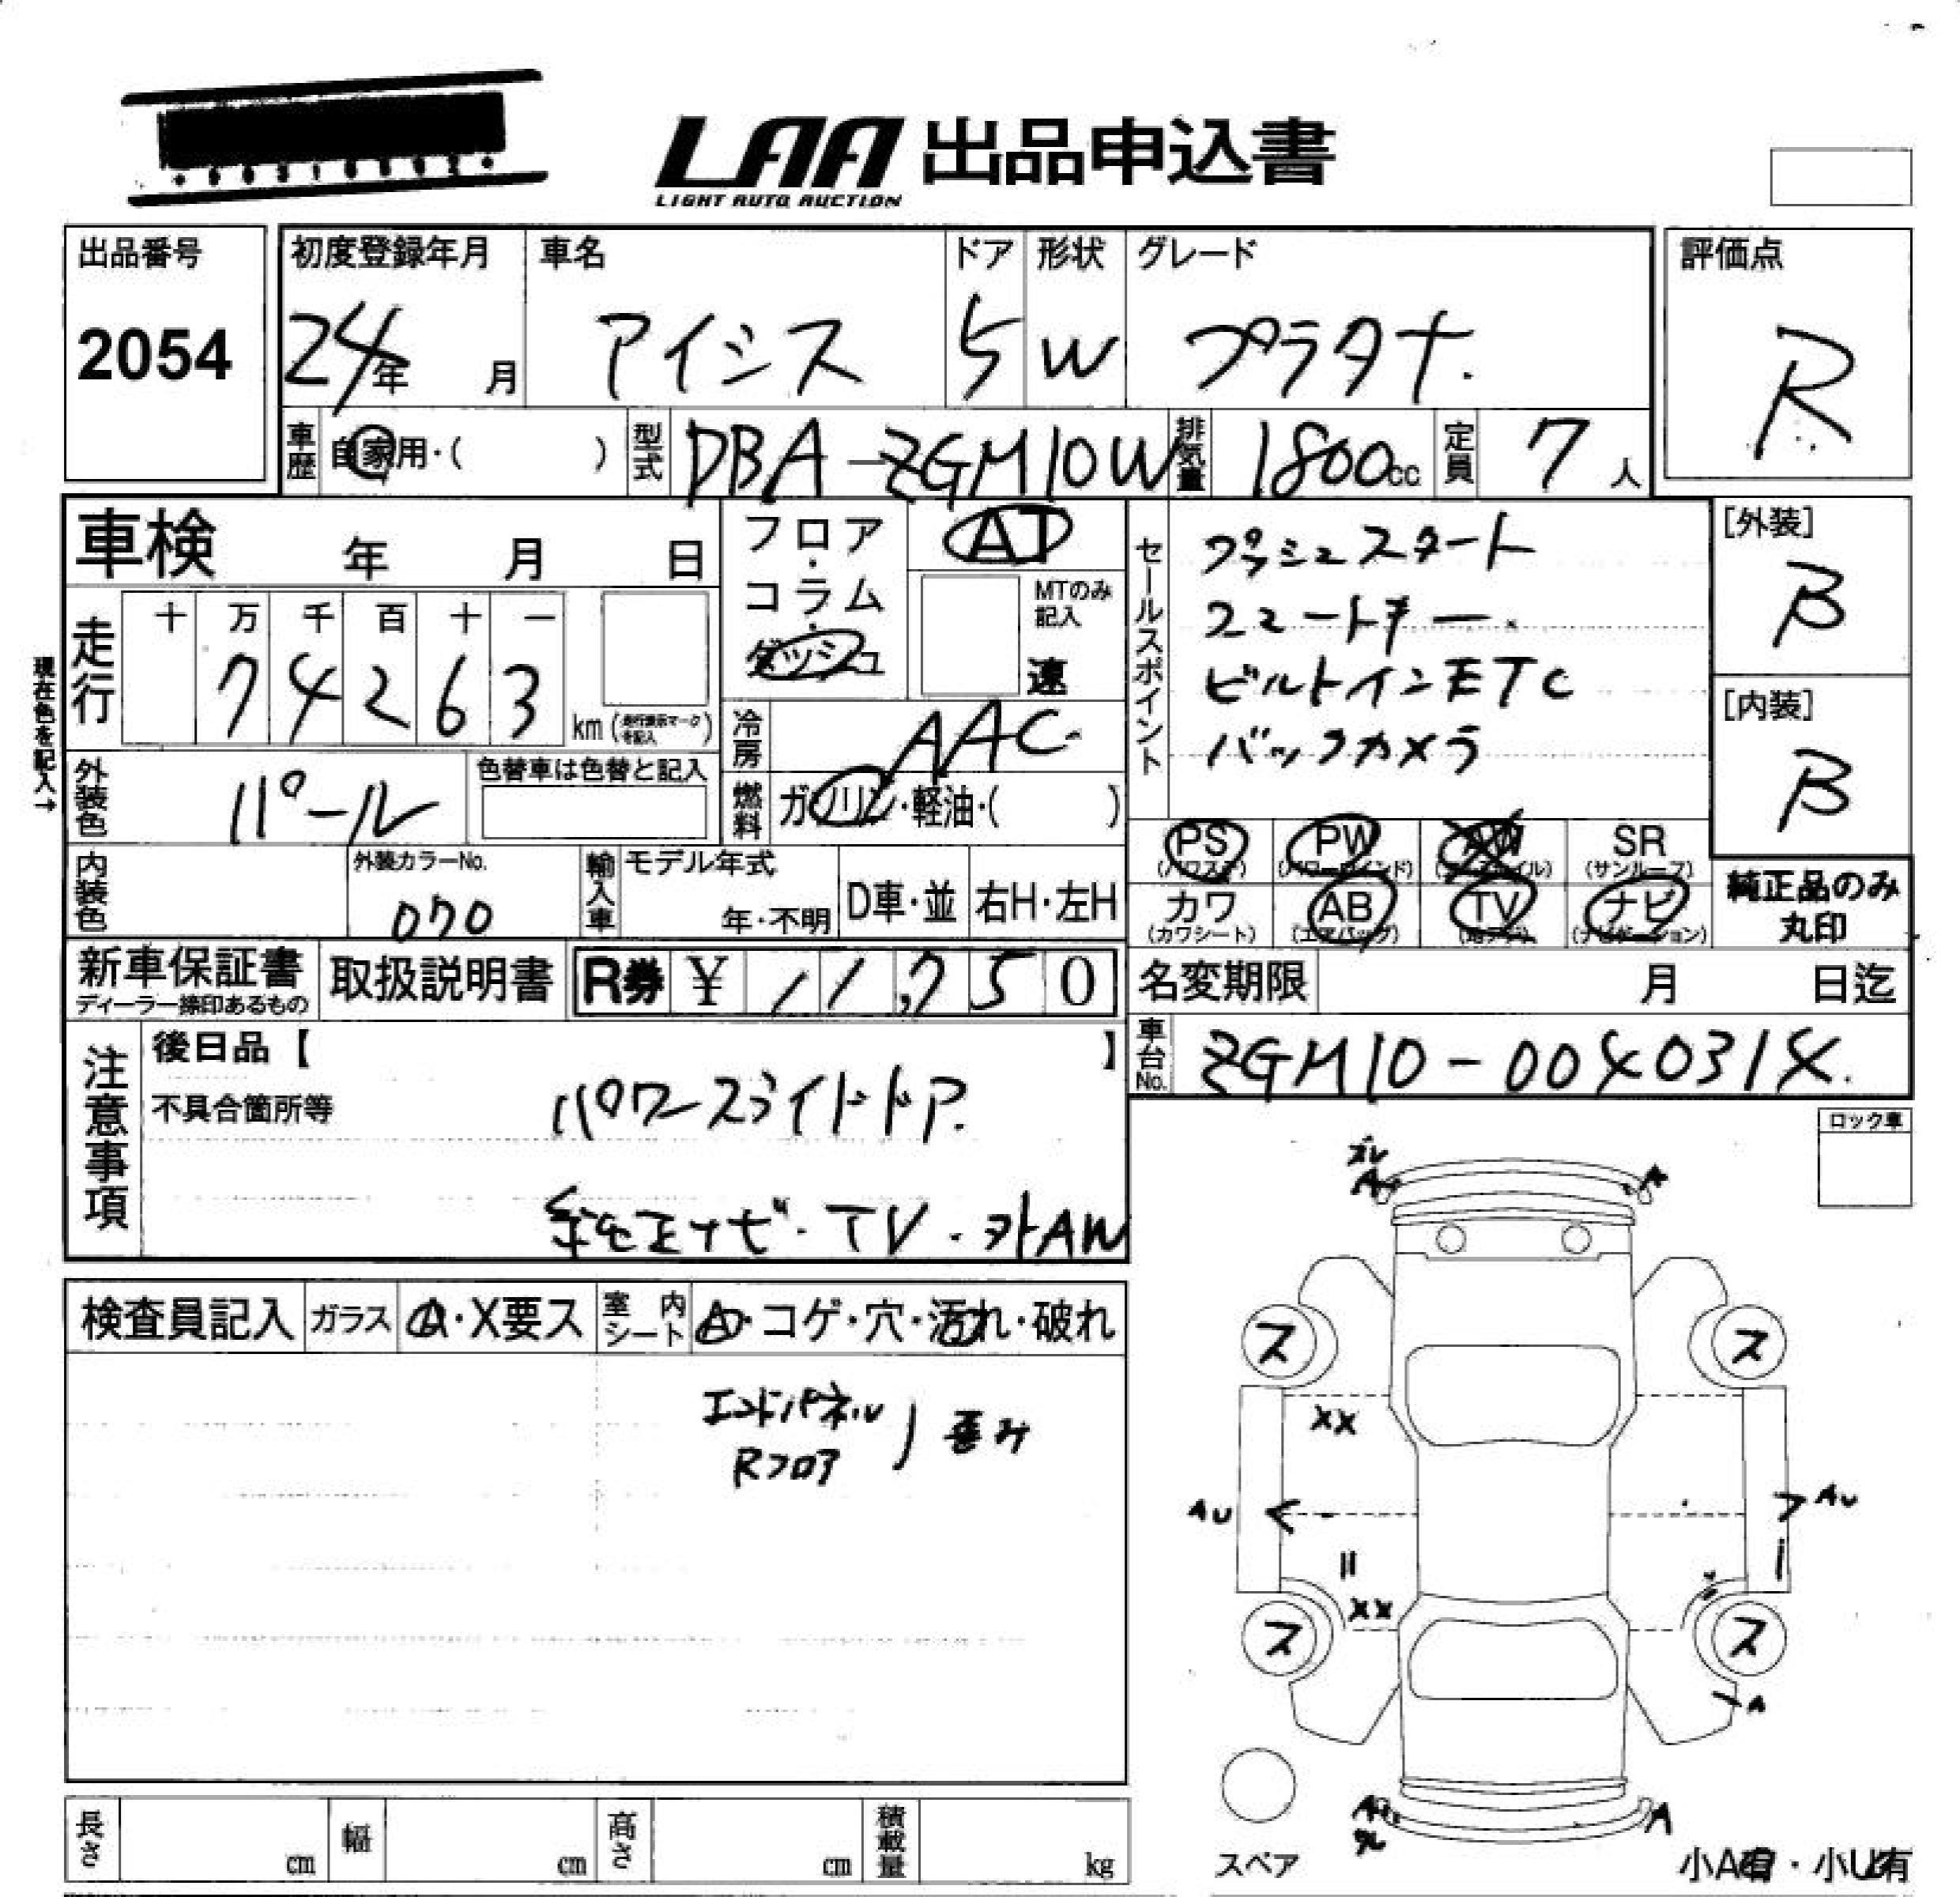 LAA 出品申込書
LIGHT AUTO AUCTION
出品番号
2054
初度登録年月
24年 月
車名
アイシス
ドア
5
形状
W
グレード
プラタナ.
評価点
R
車歴
自家用・( )
型式
DBA-ZGM10W
排気量
1800cc
定員
7人
車検 年 月 日
フロア・コラム・ダッシュ
AT
MTのみ記入
速
セールスポイント
プッシュスタート
スマートキー.
ビルトインETC
バックカメラ
[外装]
B
[内装]
B
現在色を記入→
走行
十 万 千 百 十 一
7 4 2 6 3
km (走行表示マークを記入)
冷房
AAC.
外装色
パール
色替車は色替と記入
燃料
ガソリン・軽油・( )
PS
(パワステ)
PW
(パワーウインド)
AW
(アルミホイル)
SR
(サンルーフ)
カワ
(カワシート)
AB
(エアバッグ)
TV
(地デジ)
ナビ
(ナビゲーション)
純正品のみ
丸印
内装色
外装カラーNo.
070
輸入車
モデル年式
年・不明
D車・並
右H・左H
新車保証書
ディーラー捺印あるもの
取扱説明書
R券 ¥ 11,750
名変期限 月 日迄
車台No.
ZGM10-0040314.
注意事項
後日品【 】
不具合箇所等
パワースライドドア.
純正ナビ・TV・外AW
ロック車
検査員記入
ガラス
A・X要ス
室内シート
A・コゲ・穴・汚れ・破れ
エンドパネル
Rフロア
歪み
ズレ
A
A
ス
ス
XX
AU
AU
XX
ス
ス
A
A
ズレ
A
スペア
小A有・小U有
長さ cm
幅 cm
高さ cm
積載量 kg